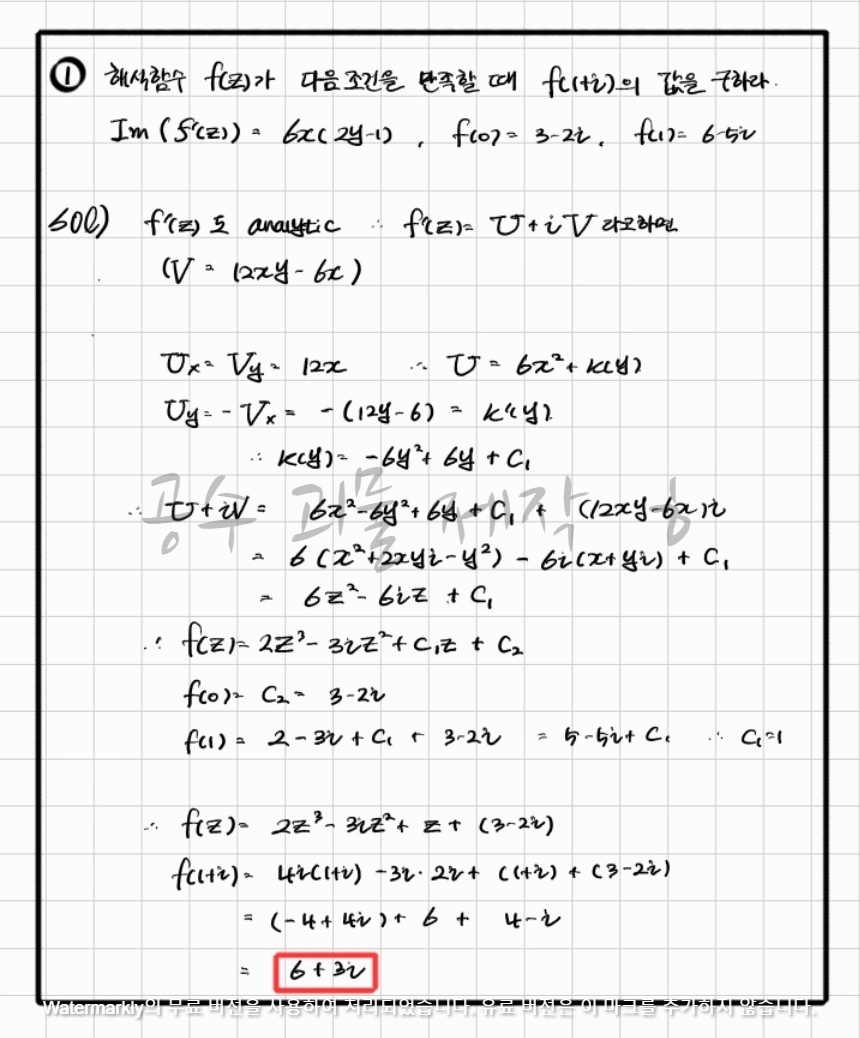 ① 해석함수 f(z)가 다음 조건을 만족할 때 f(1+i)의 값을 구하라.
Im (f'(z)) = 6x(2y-1) , f(0) = 3-2i, f(1) = 6-5i
sol) f'(z) 도 analytic ∴ f'(z) = U+iV 라고하면
(V = 12xy - 6x)
Ux = Vy = 12x ∴ U = 6x²+ k(y)
Uy = - Vx = - (12y-6) = k'(y)
∴ k(y) = -6y²+ 6y + C₁
∴ U+iV = 6x²-6y²+ 6y + C₁ + (12xy-6x)i
공수 괴물 제작
= 6 (x²+2xyi-y²) - 6i(x+yi) + C₁
= 6z²- 6iz + C₁
∴ f(z) = 2z³- 3iz²+ C₁z + C₂
f(0) = C₂ = 3-2i
f(1) = 2 - 3i + C₁ + 3-2i = 5-5i + C₁ ∴ C₁=1
∴ f(z) = 2z³- 3iz²+ z + (3-2i)
f(1+i) = 4i(1+i) -3i· 2i + (1+i) + (3-2i)
= (-4+4i) + 6 + 4-i
= 6+3i
Watermarkly의 무료 버전을 사용하여 처리되었습니다. 유료 버전은 이 마크를 추가하지 않습니다.